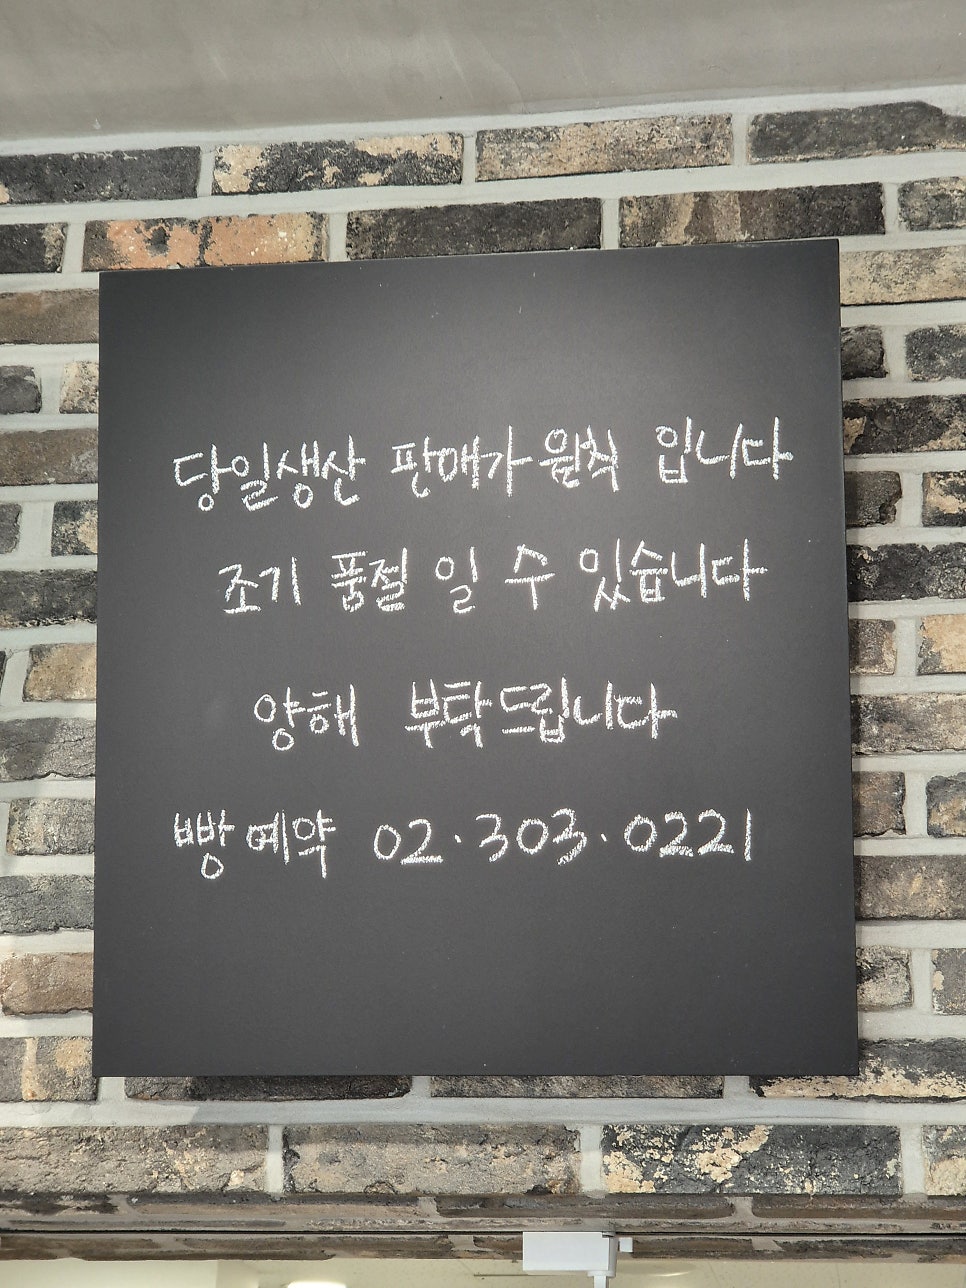 당일생산 판매가 원칙 입니다
조기 품절 일 수 있습니다
양해 부탁드립니다
빵 예약 02·303·0221